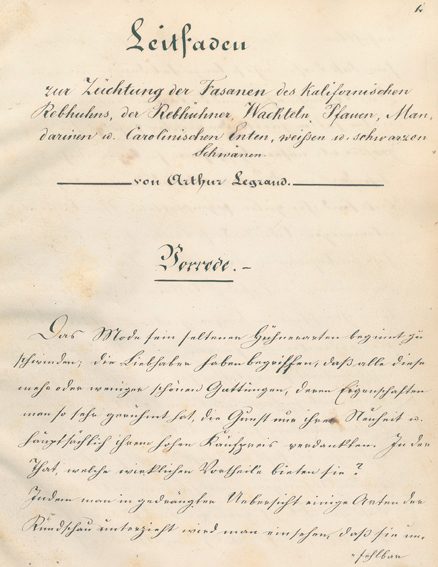 1.
Leitfaden
zur Züchtung der Fasanen des kalifornischen
Rebhuhns, der Rebhühner, Wachteln, Pfauen, Man-
darinen u. Carolinischen Enten, weißen u. schwarzen
Schwänen
von Arthur Legrand.
Vorrede.
Das Mode sein seltener Hühnerarten beginnt zu
schwinden; die Liebhaber haben begriffen, daß alle diese
mehr oder weniger schönen Gattungen, deren Eigenschaften
man so sehr gerühmt hat, die Gunst nur ihrer Neuheit u.
hauptsächlich ihrem hohen Kaufpreis verdankten. In der
That, welche wirklichen Vortheile bieten sie?
Indem man in gedrängter Uebersicht einige Arten der
Rundschau unterzieht wird man einsehen, daß sie un-
fehlbar